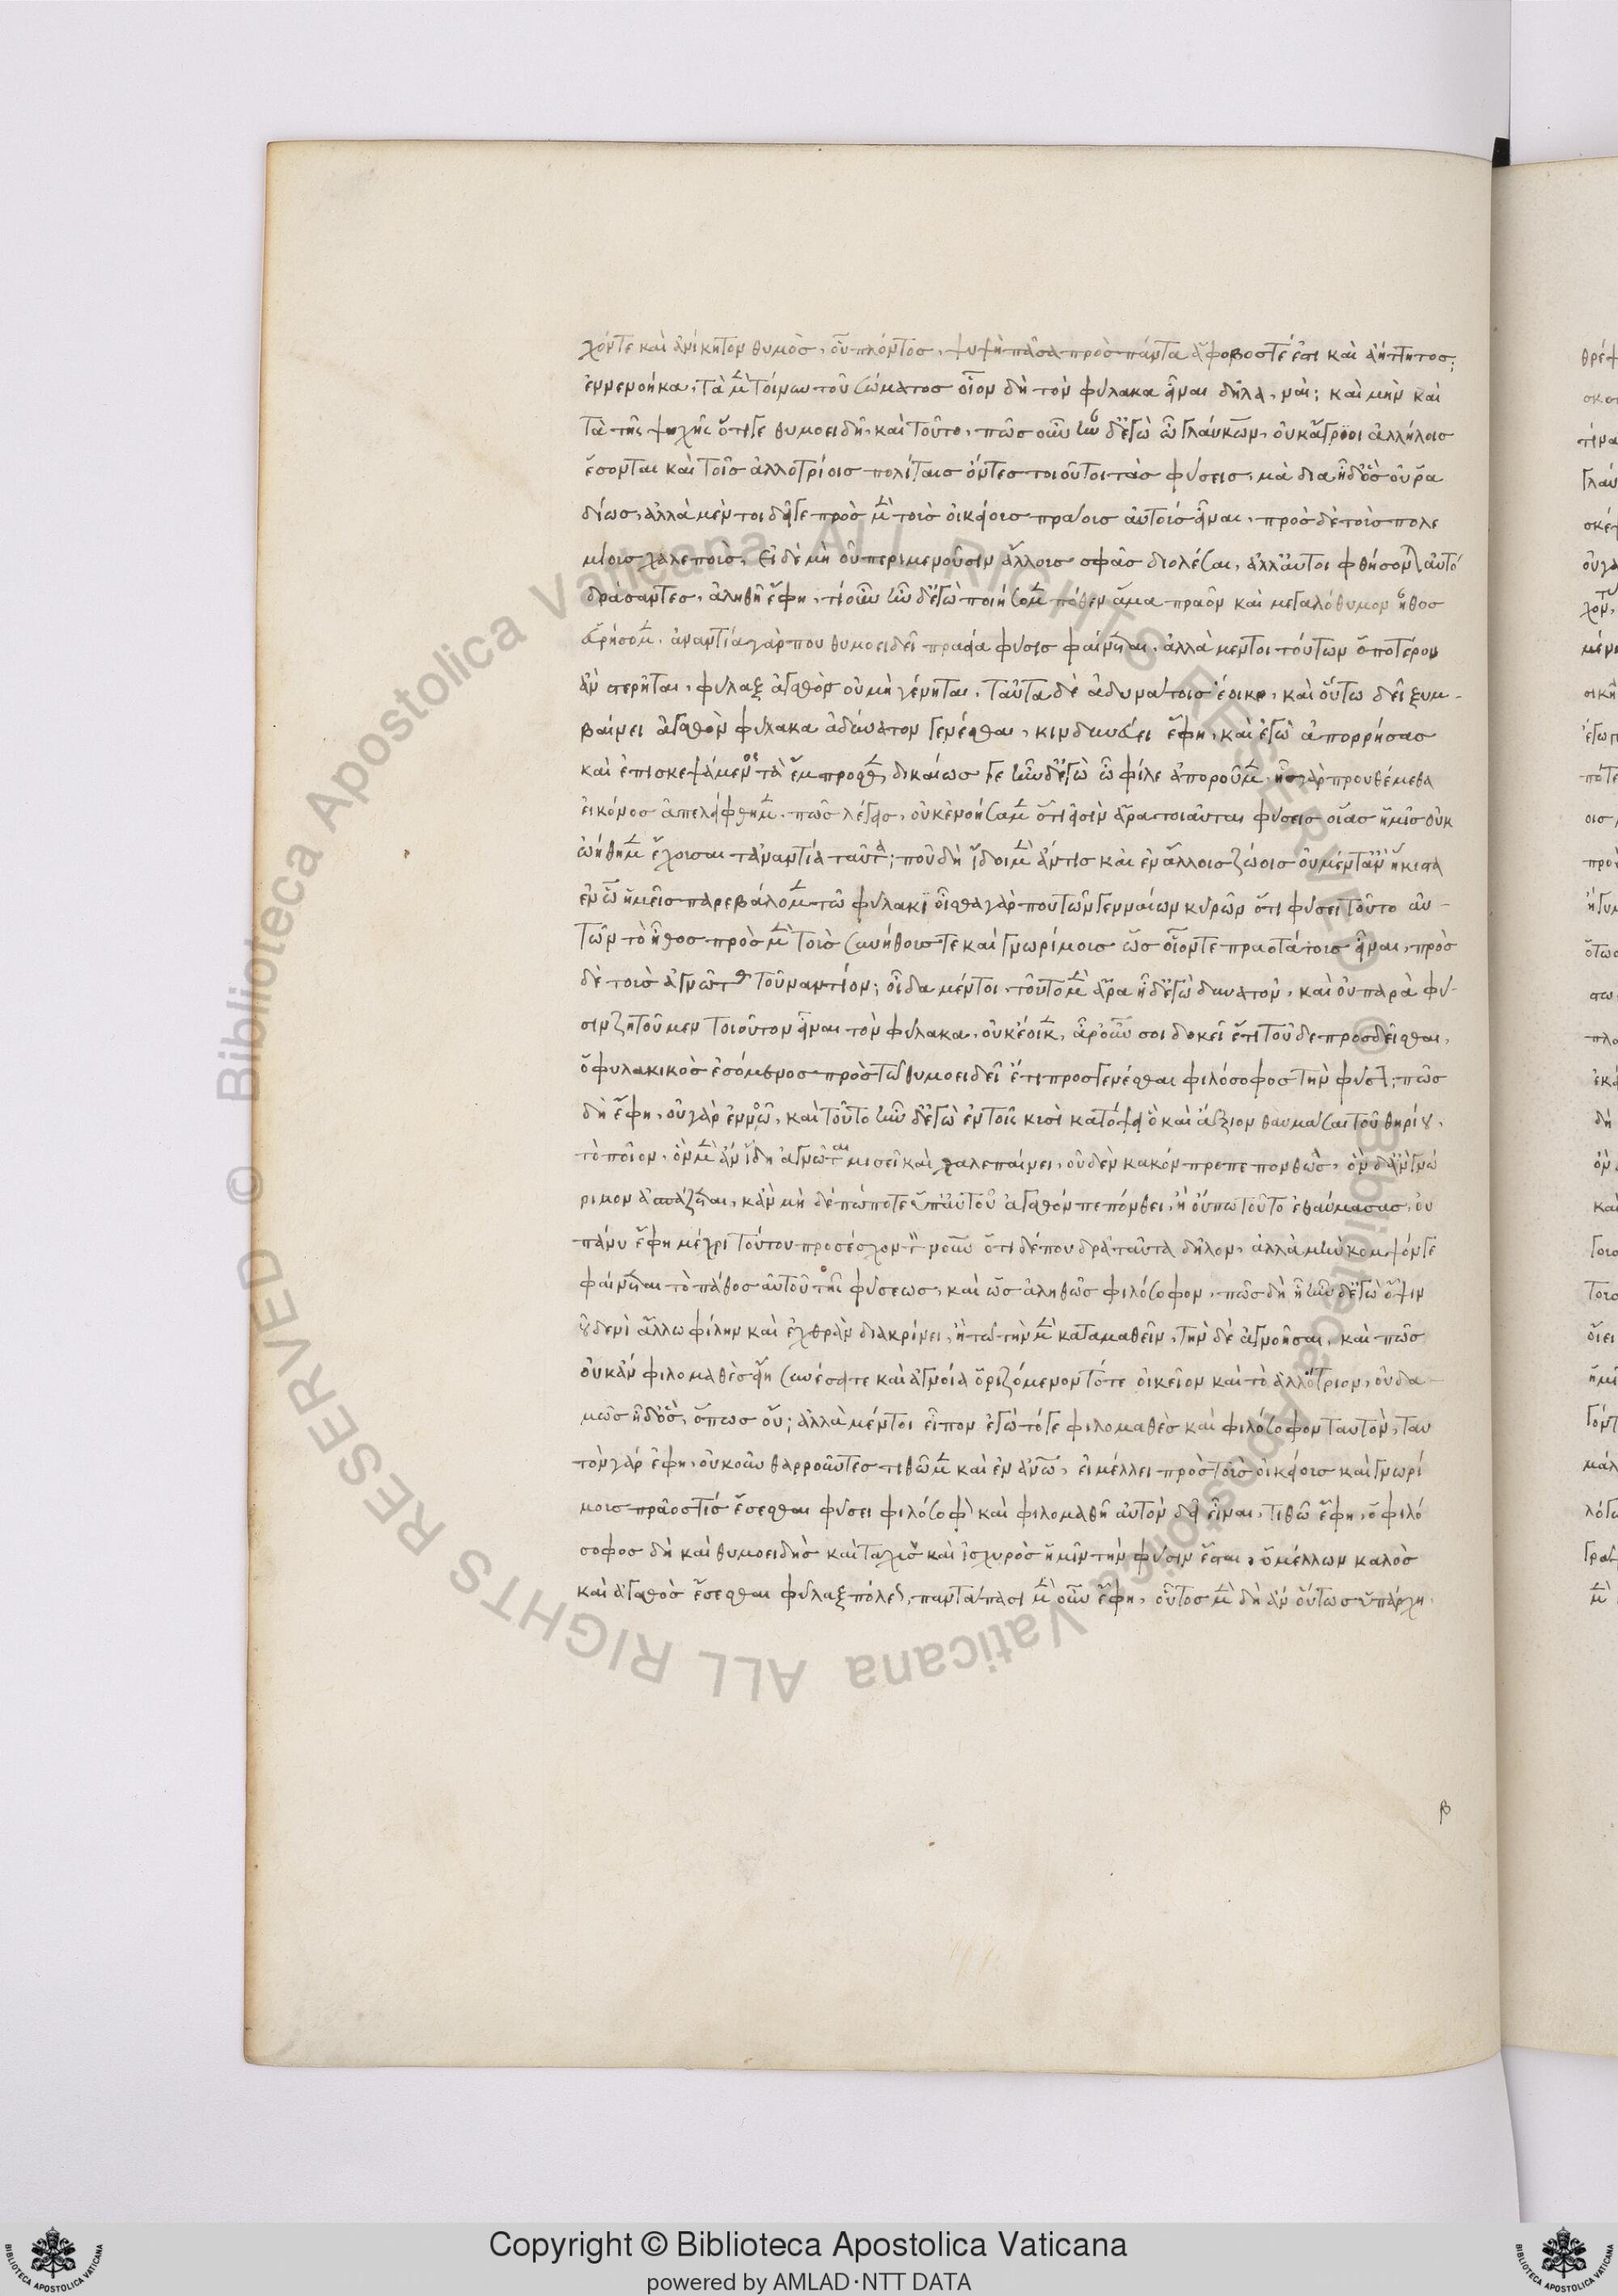 χόντε καὶ ἀνίκητον θυμὸσ, οὗ παρόντοσ, ψυχὴ πᾶσα πρὸσ πάντα ἄφοβοστέ ἐστι καὶ ἀήττητοσ;
ἐννενοήκα, τὰ μὲν τοίνυν τοῦ σώματοσ οἷον δὴ τὸν φύλακα εἶναι δῆλα, ναί; καὶ μὴν καὶ
τὰ τῆσ ψυχῆσ ὅτιγε θυμοειδῆ, καὶ τοῦτο, πῶσ οὖν ἦν δ' ἐγὼ ὦ γλαύκων, οὐκ ἄγριοι ἀλλήλοισ
ἔσονται καὶ τοῖσ ἀλλοτρίοισ πολίταισ ὄντεσ τοιοῦτοι τὰσ φύσεισ, μὰ δία ἦ δ' ὃσ οὐ ρα
δίωσ, ἀλλὰ μέντοι δεῖγε πρὸσ μὲν τοὺσ οἰκείουσ πράουσ αὐτοὺσ εἶναι, πρὸσ δὲ τοὺσ πολε
μίουσ χαλεποὺσ, εἰ δὲ μὴ οὐ περιμενοῦσιν ἄλλουσ σφᾶσ διολέσαι, ἀλλ' αὐτοὶ φθήσονται αὐτὸ
δράσαντεσ, ἀληθῆ ἔφη, τί οὖν ἦν δ' ἐγὼ ποιήσομεν πόθεν ἅμα πρᾶον καὶ μεγαλόθυμον ἦθοσ
εὑρήσομεν. ἐναντία γάρ που θυμοειδεῖ πραεῖα φύσισ φαίνεται. ἀλλὰ μέντοι τούτων ὁποτέρου
ἂν στερῆται, φύλαξ ἀγαθὸσ οὐ μὴ γένηται, ταῦτα δὲ ἀδυνάτοισ ἔοικε, καὶ οὕτω δεῖ ξυμ-
βαίνει ἀγαθὸν φύλακα ἀδύνατον γενέσθαι, κινδυνεύει ἔφη, καὶ ἐγὼ ἀπορρήσασ
καὶ ἐπισκεψάμενοσ τὰ ἔμπροσθεν, δικαίωσ γε ἦν δ' ἐγὼ ὦ φίλε ἀποροῦμεν, ἧσ γὰρ προυθέμεθα
εἰκόνοσ ἀπελείφθημεν. πῶσ λέγεισ, οὐκ ἐνοήσαμεν ὅτι εἰσὶν ἄρα τοιαῦται φύσεισ οἵασ ἡμεῖσ οὐκ
ὠήθημεν ἔχουσαι τἀναντία ταῦτα; ποῦ δὴ ἴδοι μὲν ἄν τισ καὶ ἐν ἄλλοισ ζώοισ οὐ μέντ' ἂν ἥκιστα
ἐν ᾧ ἡμεῖσ παρεβάλομεν τῶ φύλακι οἶσθα γάρ που τῶν γενναίων κυνῶν ὅτι φύσει τοῦτο αὐ-
τῶν τὸ ἦθοσ πρὸσ μὲν τοὺσ συνήθεισ τε καὶ γνωρίμουσ ὡσ οἷόντε πραοτάτουσ εἶναι, πρὸσ
δὲ τοὺσ ἀγνῶτασ τοὐναντίον; οἶδα μέντοι, τοῦτο μὲν ἄρα ἦ δ' ἐγὼ δυνατὸν, καὶ οὐ παρὰ φύ-
σιν ζητοῦμεν τοιοῦτον εἶναι τὸν φύλακα. οὐκ ἔοικεν, ἆρ' οὖν σοι δοκεῖ ἔτι τοῦδε προσδεῖσθαι,
ὁ φυλακικὸσ ἐσόμενοσ πρὸσ τῶ θυμοειδεῖ ἔτι προσγενέσθαι φιλόσοφοσ τὴν φύσιν; πῶσ
δὴ ἔφη, οὐ γὰρ ἐννοῶ, καὶ τοῦτο ἦν δ' ἐγὼ ἐν τοῖσ κυσὶ κατόψει ὃ καὶ ἄξιον θαυμάσαι τοῦ θηρίου,
τὸ ποῖον, ὃν μὲν ἂν ἴδη ἀγνῶτα μισεῖ καὶ χαλεπαίνει, οὐδὲν κακὸν προπεπονθὼσ, ὃν δ' ἂν γνώ
ριμον ἀσπάζεται, κἂν μηδέπώποτε ὑπ' αὐτοῦ ἀγαθὸν πεπόνθει, ἢ οὔπω τοῦτο ἐθαύμασασ, οὐ
πάνυ ἔφη μέχρι τούτου προσέσχον τὸν νοῦν ὅτι δέ που δρᾶ ταῦτα δῆλον, ἀλλὰ μὴν κομψόν γε
φαίνεται τὸ πάθοσ αὐτοῦ τῆσ φύσεωσ, καὶ ὡσ ἀληθῶσ φιλόσοφον, πῶσ δὴ ἦ ἦν δ' ἐγὼ ὄψιν
οὐδενὶ ἄλλω φίλην καὶ ἐχθρὰν διακρίνει, ἢ τῶ τὴν μὲν καταμαθεῖν, τὴν δὲ ἀγνοῆσαι, καὶ πῶσ
οὐκ ἂν φιλομαθὲσ εἴη συνέσει τε καὶ ἀγνοία ὁριζόμενον τό τε οἰκεῖον καὶ τὸ ἀλλότριον, οὐδα
μῶσ ἦ δ' ὃσ, ὅπωσ οὔ; ἀλλὰ μέντοι εἶπον ἐγὼ τόγε φιλομαθὲσ καὶ φιλόσοφον ταυτὸν, ταυ
τὸν γὰρ ἔφη, οὐκοῦν θαρροῦντεσ τιθῶμεν καὶ ἐν ἀνθρώπω, εἰ μέλλει πρὸσ τοὺσ οἰκείουσ καὶ γνωρί
μουσ πρᾶόσ τισ ἔσεσθαι φύσει φιλόσοφον καὶ φιλομαθῆ αὐτὸν δεῖ εἶναι, τιθῶ ἔφη, ὁ φιλό
σοφοσ δὴ καὶ θυμοειδὴσ καὶ ταχὺσ καὶ ἰσχυρὸσ ἡμῖν τὴν φύσιν ἔσται, ὁ μέλλων καλὸσ
καὶ ἀγαθὸσ ἔσεσθαι φύλαξ πόλεωσ, παντάπασι μὲν οὖν ἔφη, οὗτοσ μὲν δὴ ἂν οὕτωσ ὑπάρχη,
β